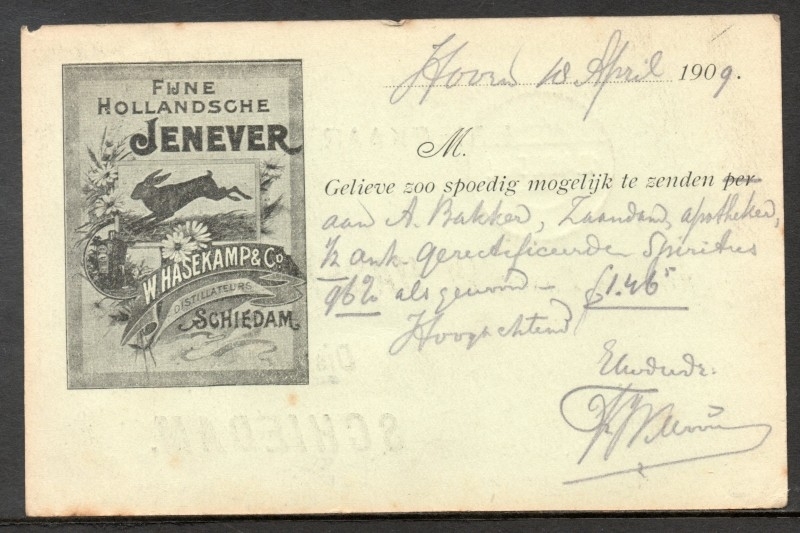 FIJNE
HOLLANDSCHE
JENEVER
W. HASEKAMP & Co
DISTILLATEURS
SCHIEDAM
Hoorn 18 April 1909.
M.
Gelieve zoo spoedig mogelijk te zenden per
aan A. Bakker, Zaandam, apotheker,
1/2 ank. gerectificeerden Spiritus
96% als gewoon – f 1.46⁵
Hoogachtend
SCHIEDAM.